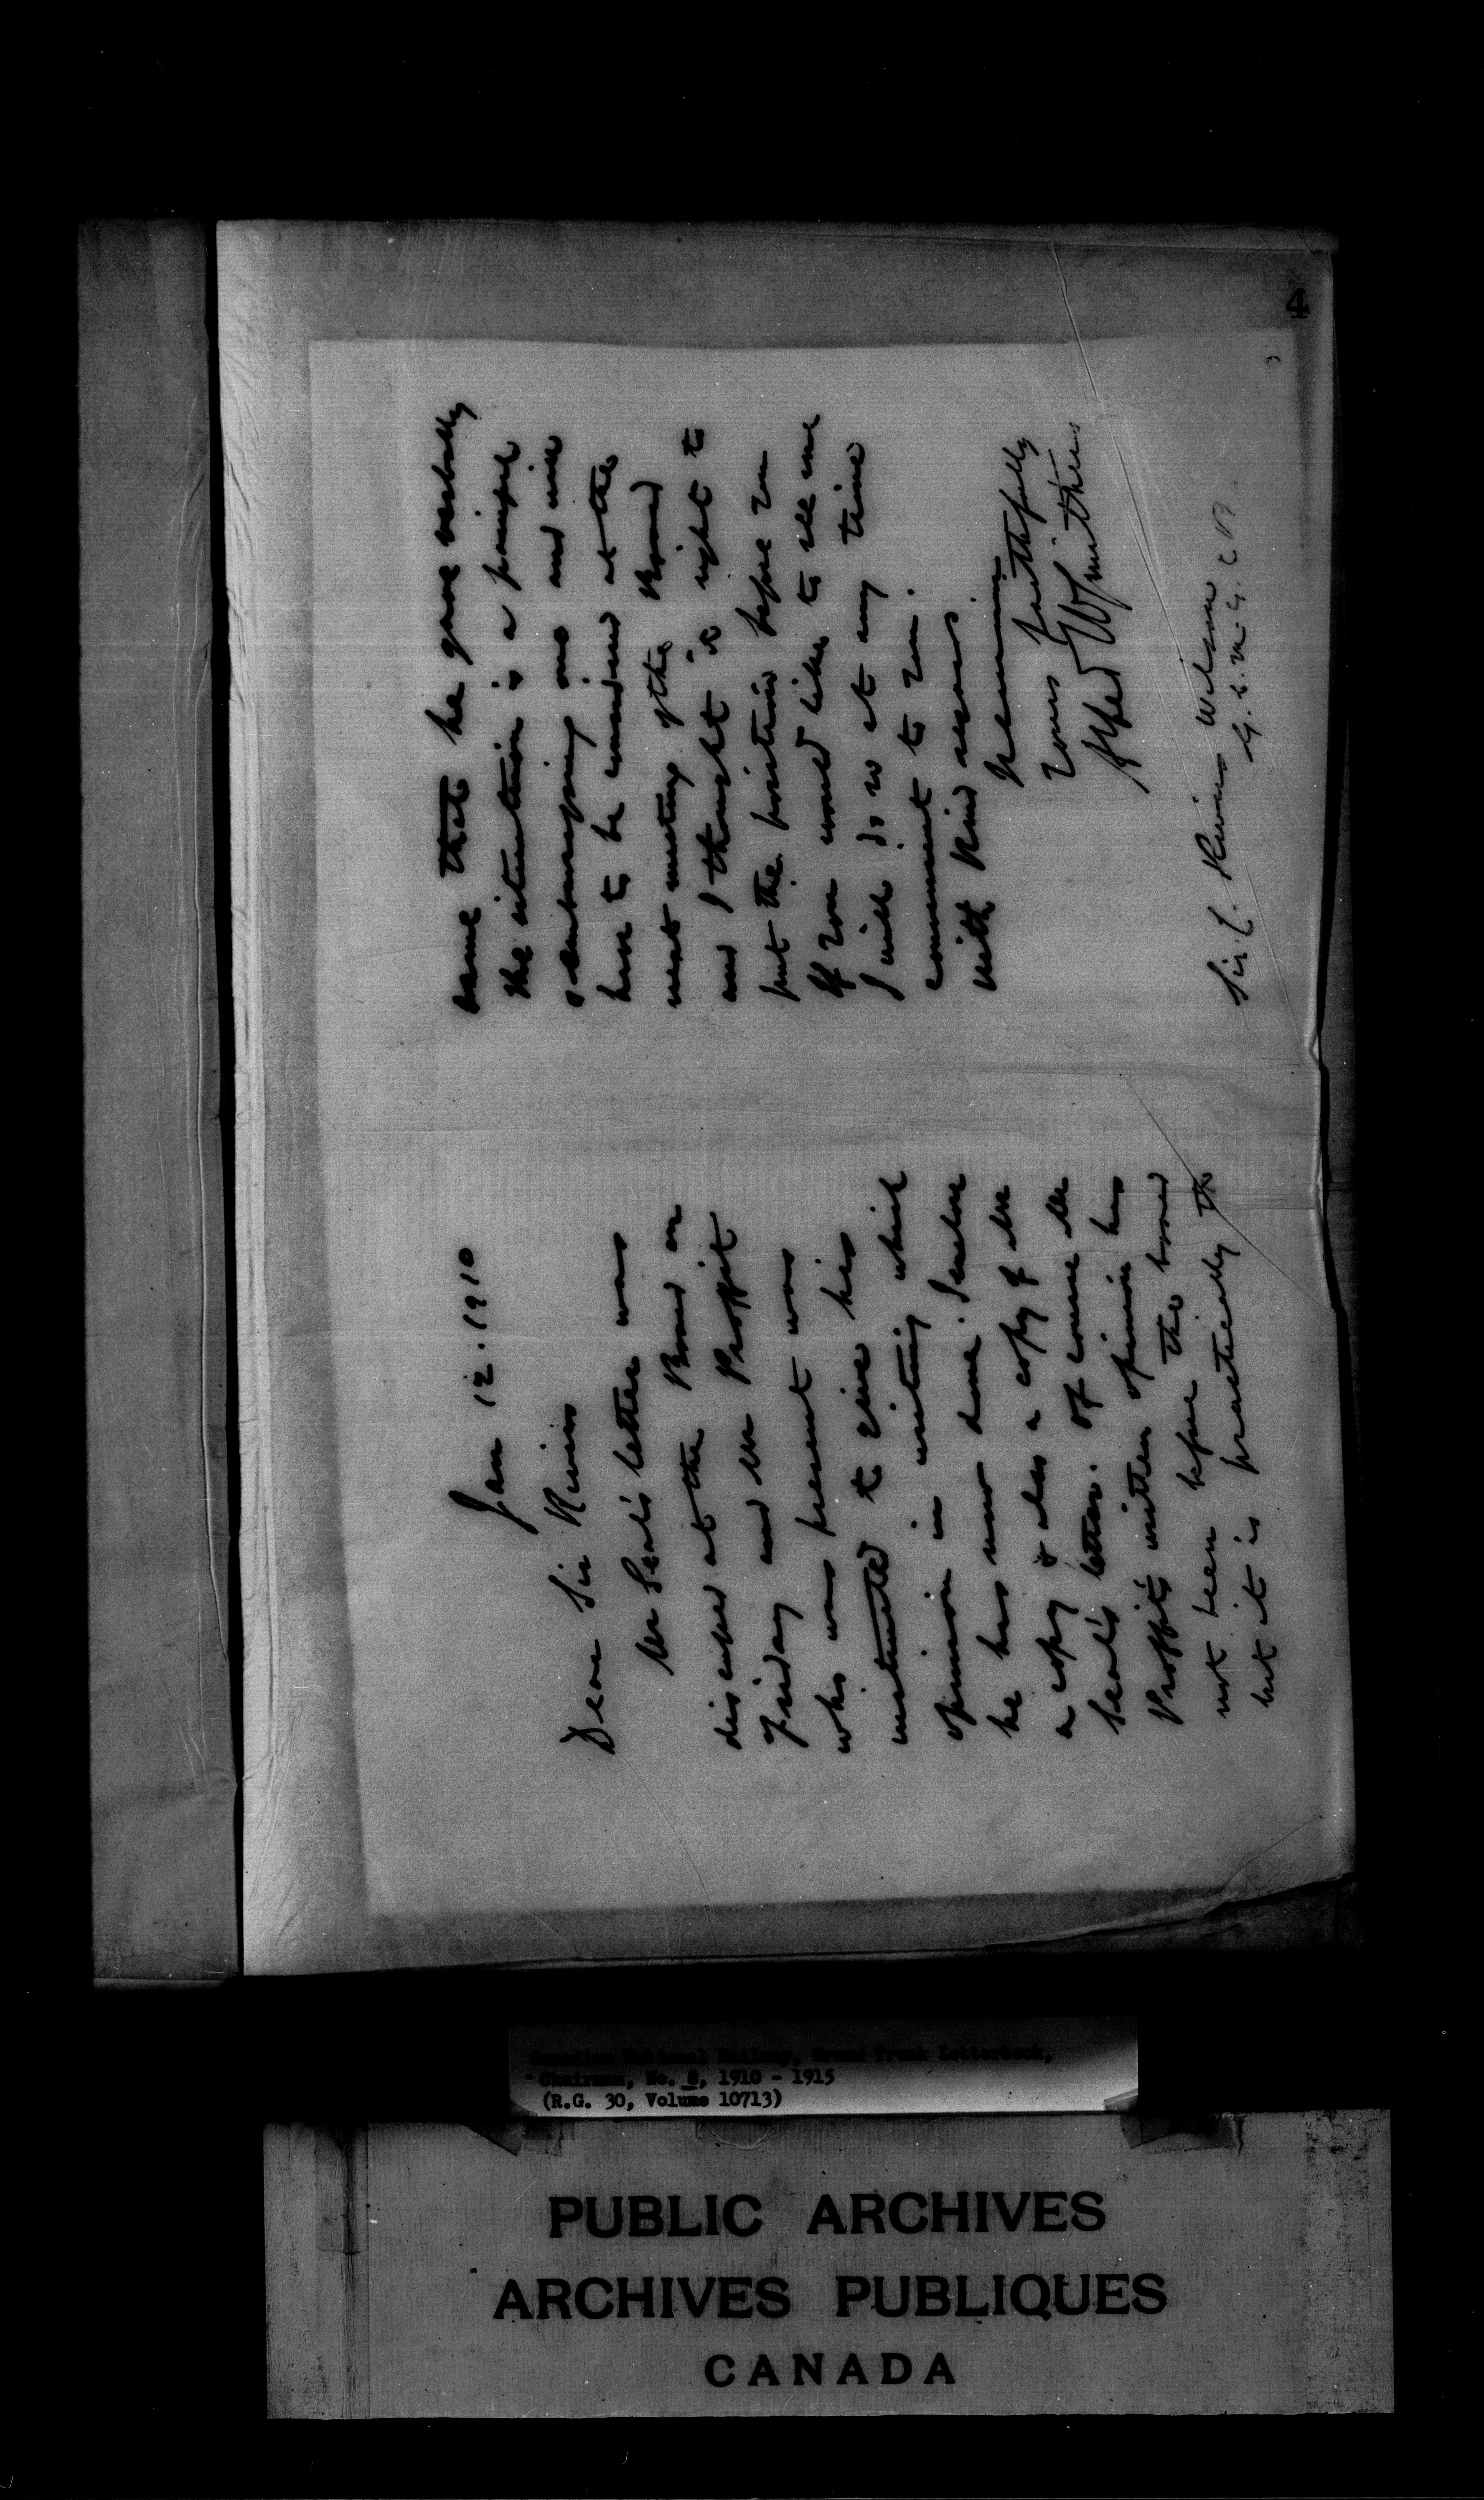 4
Jan 12. 1910
Dear Sir Rivers
Mr Seal's letter was
discussed at the Board on
Friday and Mr Proffit
who was present was
instructed to give his
opinion in writing which
he has now done. I enclose
a copy & also a copy of Mr
Seal's letter. Of course Mr
Proffit's written opinion has
not been before the board
but it is practically the
same that he gave verbally
The situation is a painful
& embarrassing one and will
have to be considered at the
next meeting of the Board
and I thought it right to
put the position before you
If you would like to see me
I will do so at any time
convenient to you.
With kind regards.
Remain
Yours faithfully
Alfred W Smithers
Sir C. Rivers Wilson
G.C.M.G. C.B.
Canadian National Railway, Grand Trunk Letterbook,
Chairman, No. 8, 1910 - 1915
(R.G. 30, Volume 10713)
PUBLIC ARCHIVES
ARCHIVES PUBLIQUES
CANADA